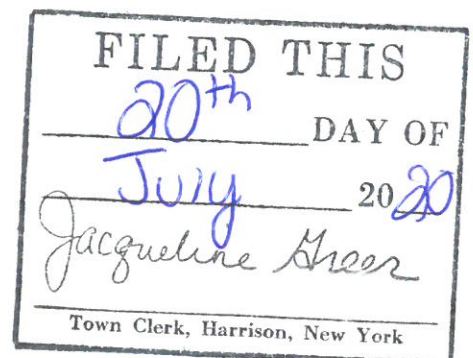 FILED THIS
20th DAY OF
July 2020
Jacqueline Greer
Town Clerk, Harrison, New York